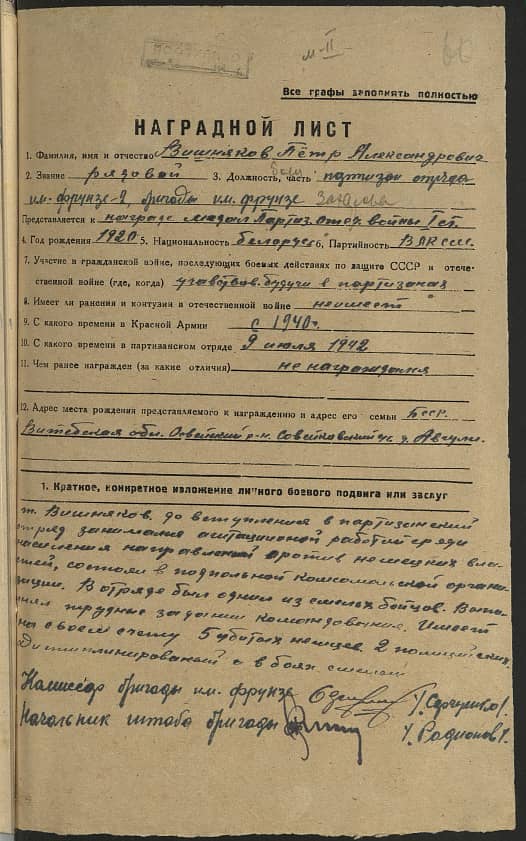 м-II
60
Все графы заполнять полностью
НАГРАДНОЙ ЛИСТ
1. Фамилия, имя и отчество Вишняков Пётр Александрович
2. Звание рядовой 3. Должность, часть боец партизан отряда
им. Фрунзе-2, бригады им. Фрунзе
Представляется к награде медал. Партиз. Отеч. войны I ст.
4. Год рождения 1920 5. Национальность белорус 6. Партийность ВЛКСМ.
7. Участие в гражданской войне, последующих боевых действиях по защите СССР и отече-
ственной войне (где, когда) участвов. будучи в партизанах
8. Имеет ли ранения и контузии в отечественной войне не имеет
9. С какого времени в Красной Армии с 1940г.
10. С какого времени в партизанском отряде 9 июля 1942
11. Чем ранее награжден (за какие отличия) не награждался
12. Адрес места рождения представляемого к награждению и адрес его семьи БССР.
Витебская обл. Освейский р-н. д. Авгули.
1. Краткое, конкретное изложение личного боевого подвига или заслуг
т. Вишняков. до вступления в партизанский
отряд занимался агитационной работой среди
населения направленной против немецких вла-
стей, состоял в подпольной комсомольской органи-
зации. В отряде был одним из смелых бойцов. Выпо-
лнял трудные задания командования. Имеет
на своем счету 5 убитых немцев 2 полицейских.
Дисциплинирований а в боях смелый
Комиссар бригады им. Фрунзе
Начальник штаба бригады /. Радионов /.